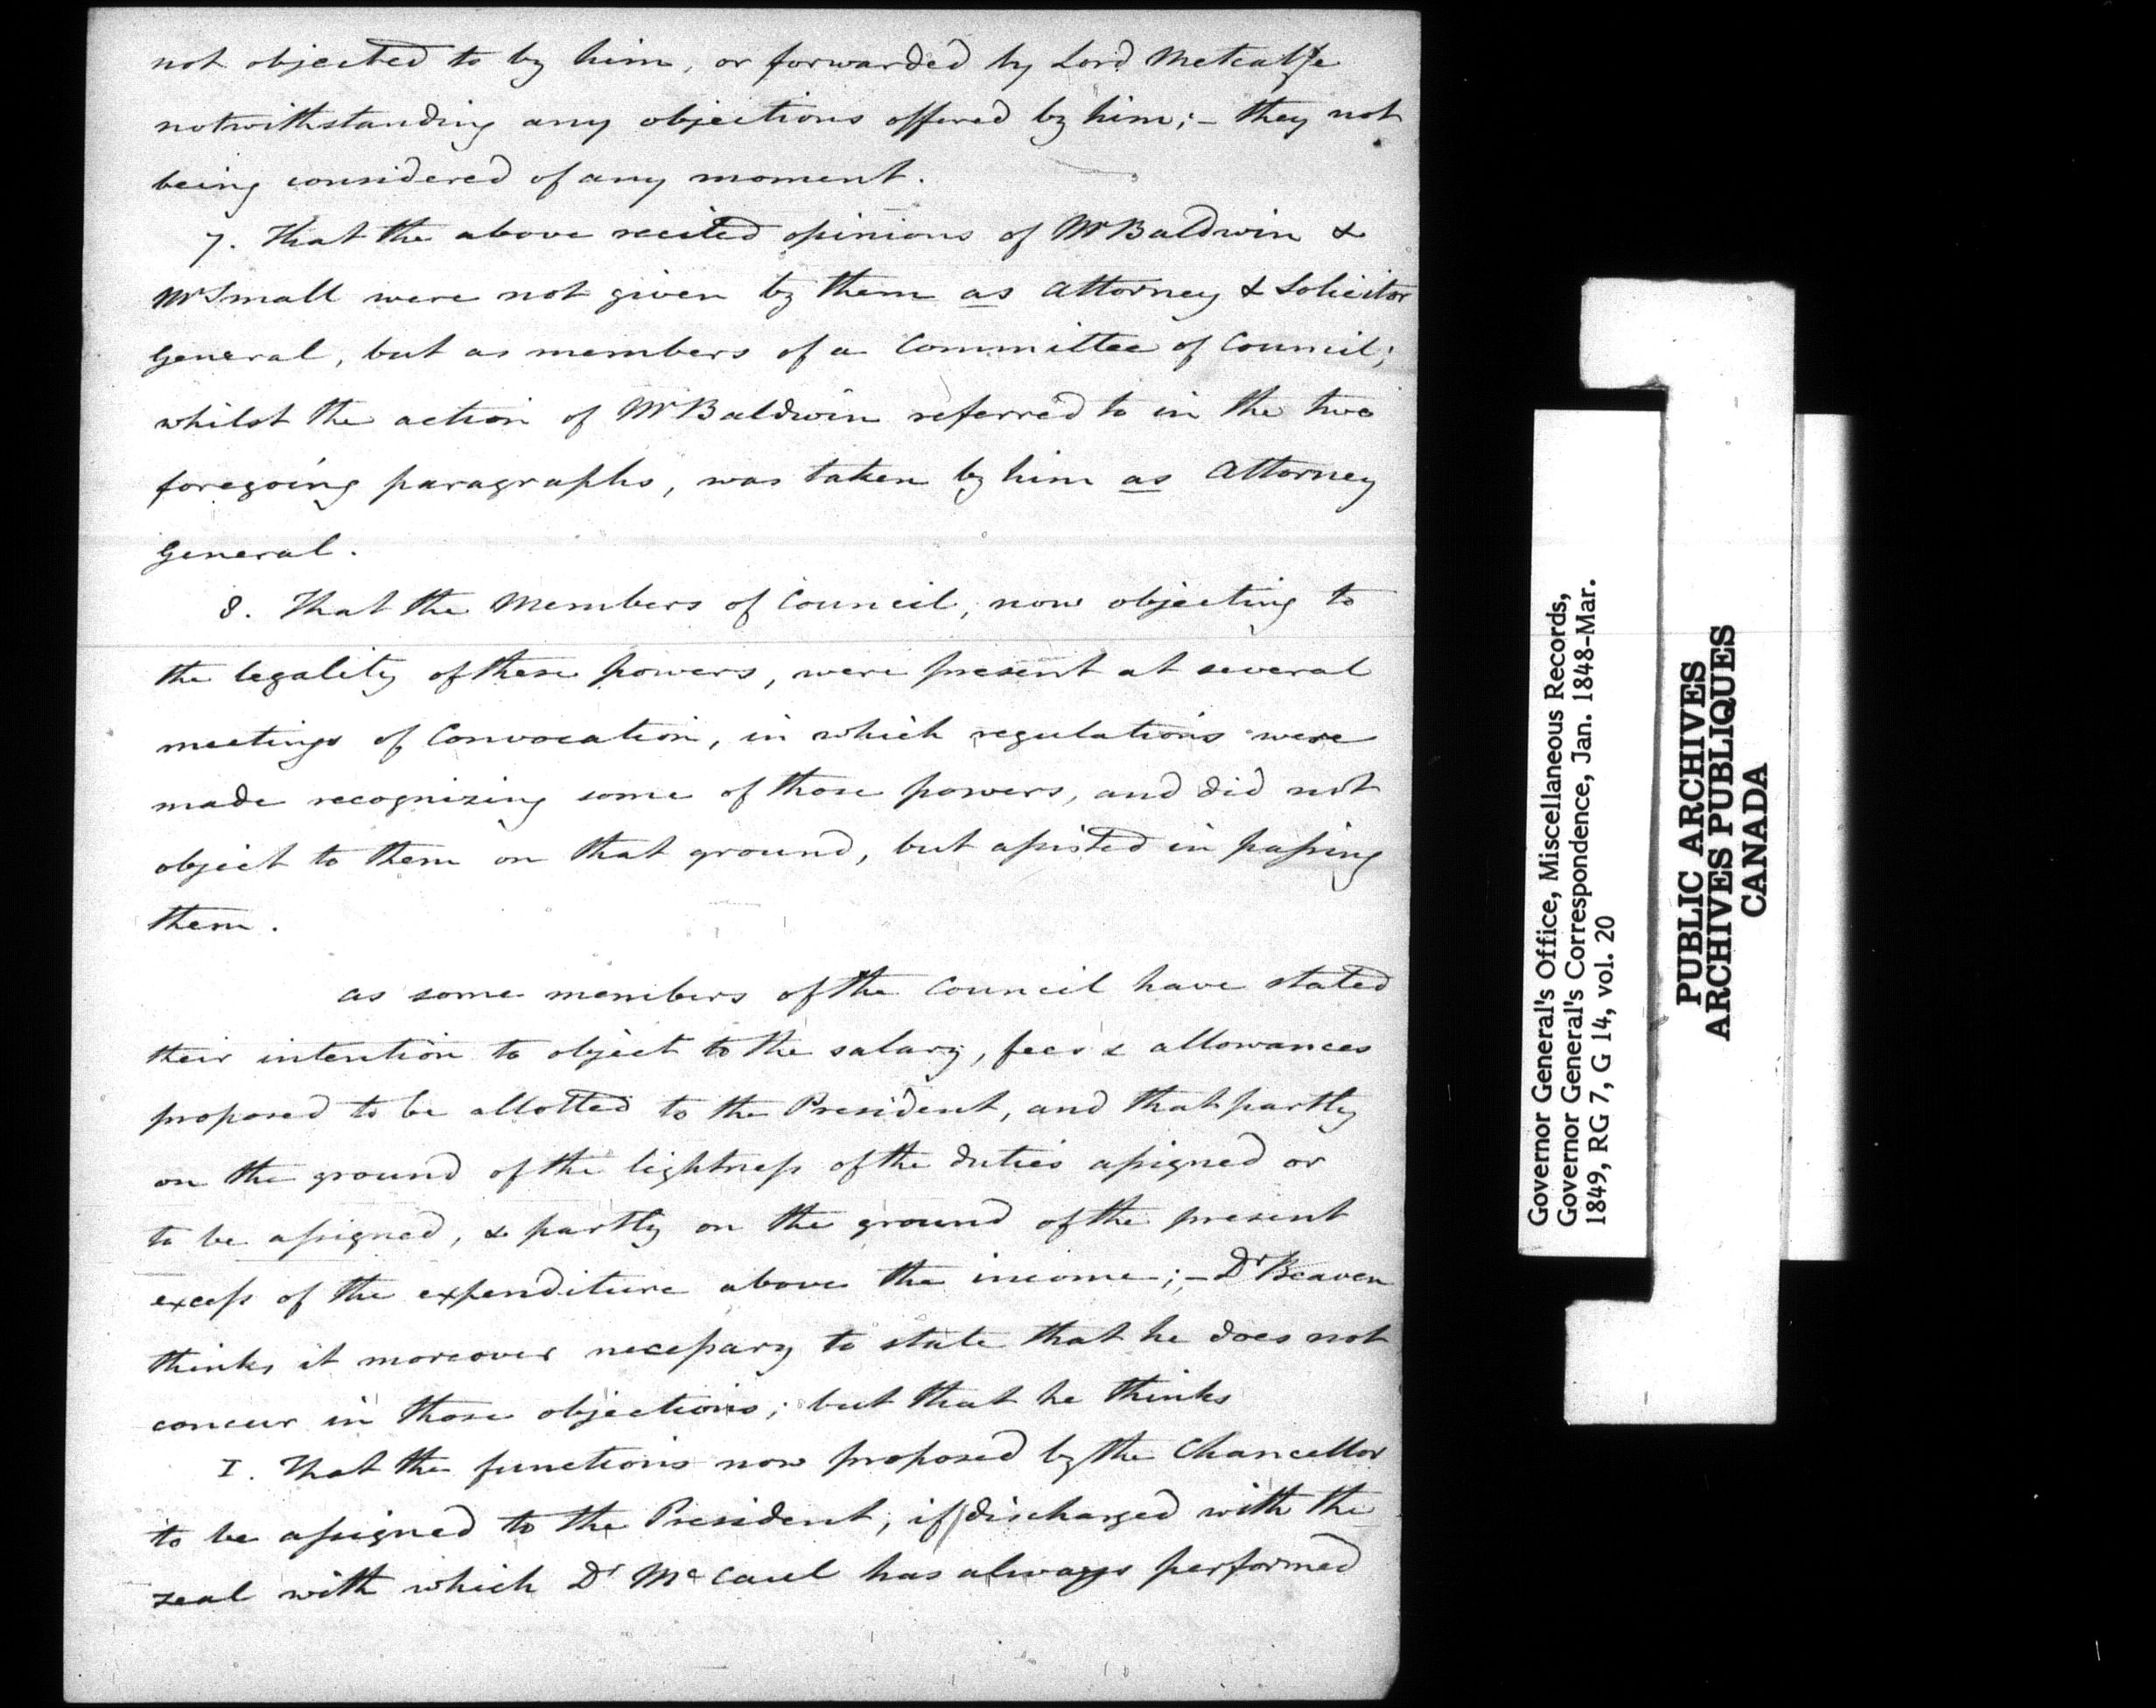 not objected to by him, or forwarded by Lord Metcalfe
notwithstanding any objections offered by him; – they not
being considered of any moment.
7. That the above recited opinions of Mr Baldwin &
Mr Small were not given by them as Attorney & Solicitor
General, but as members of a Committee of Council;
whilst the action of Mr Baldwin referred to in the two
foregoing paragraphs, was taken by him as Attorney
General.
8. That the Members of Council, now objecting to
the legality of these powers, were present at several
meetings of Convocation, in which regulations were
made recognizing some of those powers, and did not
object to them on that ground, but assisted in passing
them.
As some members of the Council have stated
their intention to object to the salary, fees & allowances
proposed to be allotted to the President, and that partly
on the ground of the lightness of the duties assigned or
to be assigned, & partly on the ground of the present
excess of the expenditure above the income; – Dr Beaven
thinks it moreover necessary to state that he does not
concur in those objections; but that he thinks
I. That the functions now proposed by the Chancellor
to be assigned to the President, if discharged with the
zeal with which Dr McCaul has always performed
Governor General's Office, Miscellaneous Records,
Governor General's Correspondence, Jan. 1848-Mar.
1849, RG 7, G 14, vol. 20
PUBLIC ARCHIVES
ARCHIVES PUBLIQUES
CANADA